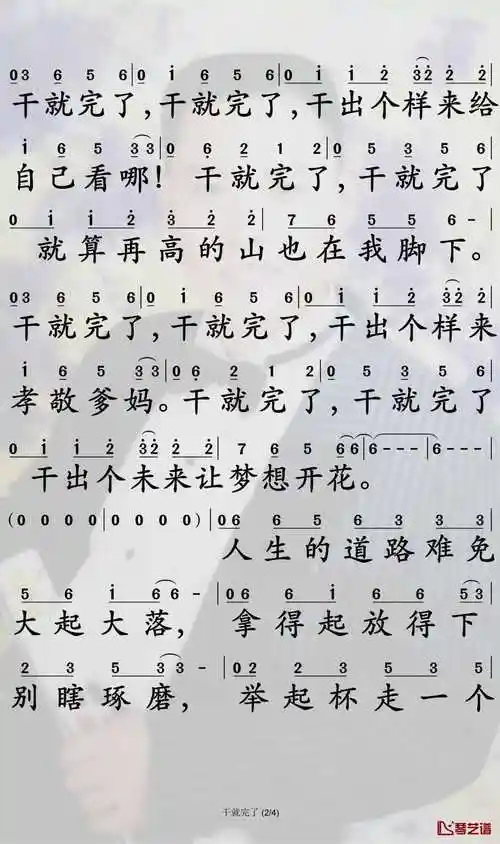 03 6 5 6|0 i 6 5 6|0 i i 2 32 2 2
干就完了,干就完了,干出个样来给
i 6 5 33|0 6 2 1 2|0 3 5 3 5 6
自己看哪! 干就完了,干就完了
0 i i 2 3 2|7 6 5 5 6 -|
就算再高的山也在我脚下。
03 6 5 6|0 i 6 5 6|0 i i 2 32 2
干就完了,干就完了,干出个样来
i 6 5 33|0 6 2 1 2|0 3 5 3 5 6
孝敬爹妈。干就完了,干就完了
0 i i 2 32 2 2|7 6 5 66|6---|6--
干出个未来让梦想开花。
(0 0 0 0|0 0 0 0)|06 6 5 6 3 3
人生的道路难免
5 6 i 66 -|06 6 i 6 6 53
大起大落, 拿得起放得下
2 3 5 33 -|02 2 3 5 3 5
别瞎琢磨, 举起杯走一个
干就完了 (2/4)
琴艺谱